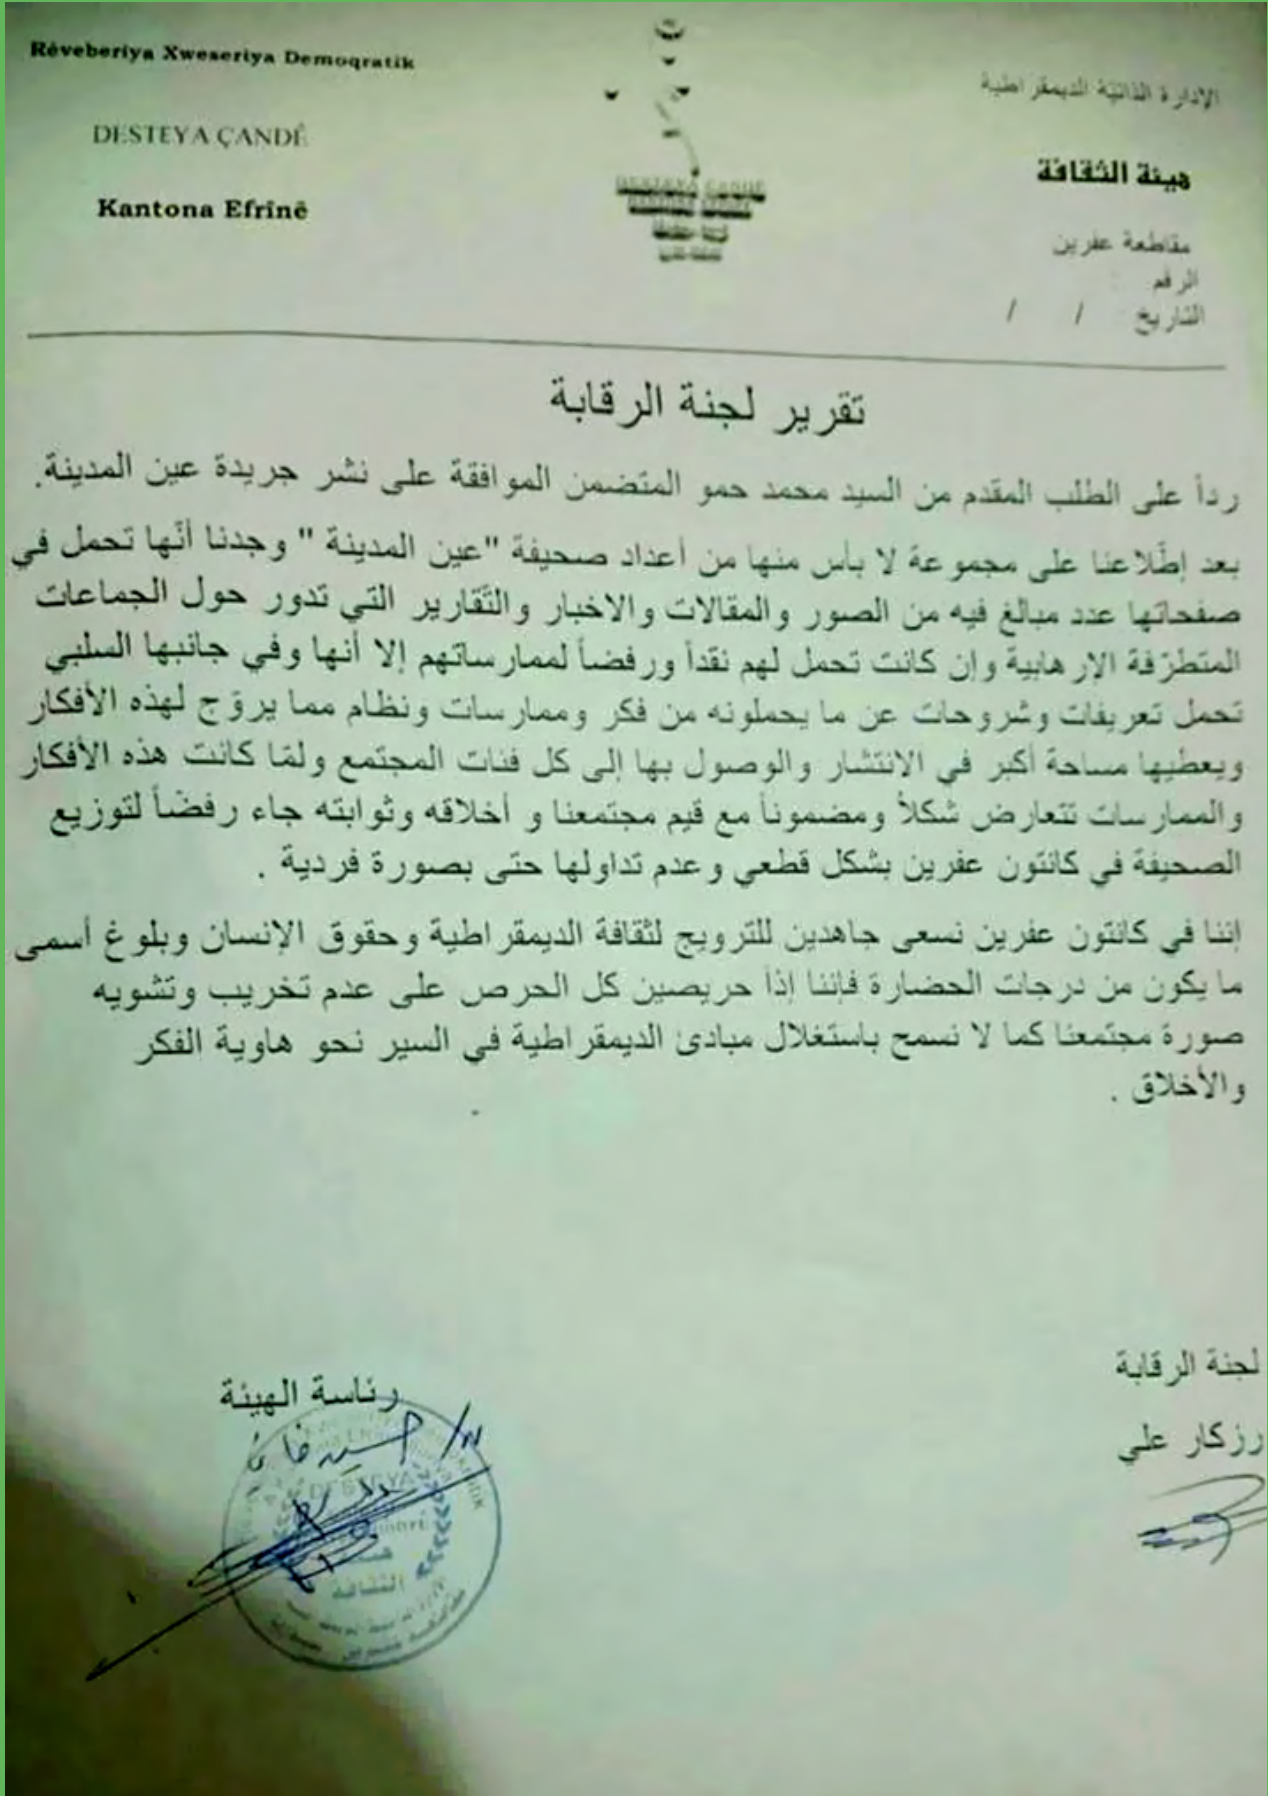 Rêveberiya Xweseriya Demoqratik
DESTEYA ÇANDÊ
Kantona Efrînê
الإدارة الذاتية الديمقراطية
هيئة الثقافة
مقاطعة عفرين
الرقم :
التاريخ : / /
DESTEYA ÇANDÊ
تقرير لجنة الرقابة
رداً على الطلب المقدم من السيد محمد حمو المتضمن الموافقة على نشر جريدة عين المدينة.
بعد إطّلاعنا على مجموعة لا بأس منها من أعداد صحيفة "عين المدينة " وجدنا أنّها تحمل في
صفحاتها عدد مبالغ فيه من الصور والمقالات والاخبار والتّقارير التي تدور حول الجماعات
المتطرّفة الإرهابية وإن كانت تحمل لهم نقداً ورفضاً لممارساتهم إلا أنها وفي جانبها السلبي
تحمل تعريفات وشروحات عن ما يحملونه من فكر وممارسات ونظام مما يروّج لهذه الأفكار
ويعطيها مساحة أكبر في الانتشار والوصول بها إلى كل فئات المجتمع ولمّا كانت هذه الأفكار
والممارسات تتعارض شكلاً ومضموناً مع قيم مجتمعنا و أخلاقه وثوابته جاء رفضاً لتوزيع
الصحيفة في كانتون عفرين بشكل قطعي وعدم تداولها حتى بصورة فردية .
إننا في كانتون عفرين نسعى جاهدين للترويج لثقافة الديمقراطية وحقوق الإنسان وبلوغ أسمى
ما يكون من درجات الحضارة فإننا إذاً حريصين كل الحرص على عدم تخريب وتشويه
صورة مجتمعنا كما لا نسمح باستغلال مبادئ الديمقراطية في السير نحو هاوية الفكر
والأخلاق .
لجنة الرقابة
رزكار علي
رئاسة الهيئة
حسين
DESTEYA
هيئة
الثقافة